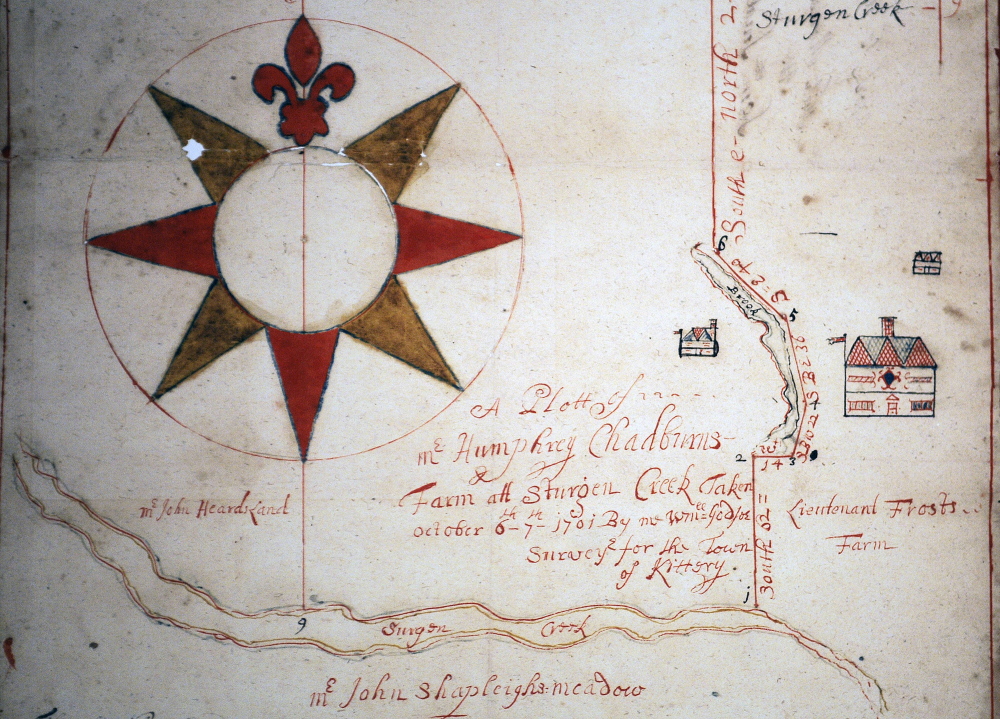 Sturgen Creek
South e- north 2
6
Brook
5
4
2
14
3
A Plott of
mr Humphrey Chadburns
&
Farm att Sturgen Creek Taken
october 6th 7th 1701 By me Wm Godsoe
Surveyr for the Town
of Kittery
mr John Heards Land
Lieutenant Frosts
Farm
South 62
1
9
Surgen Creek
mr John Shapleighs meadow